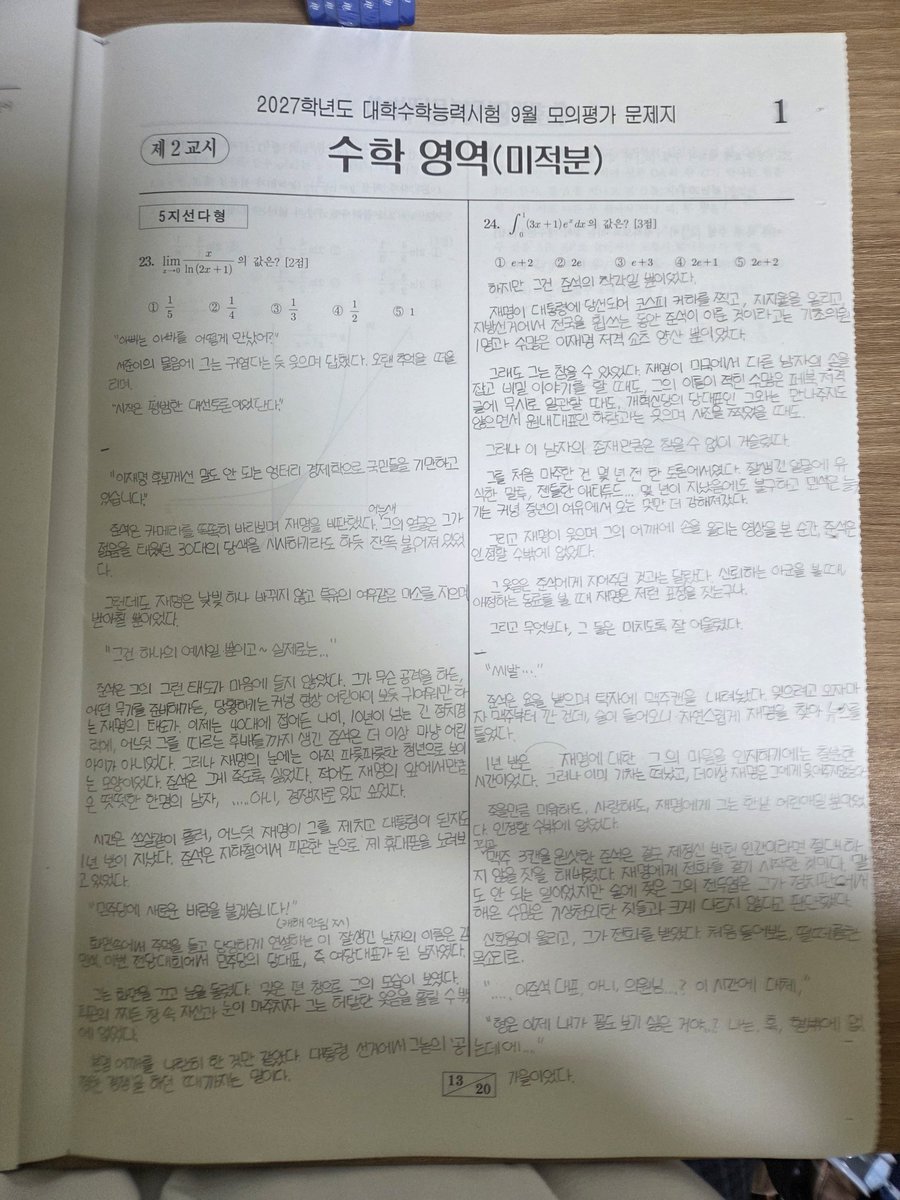 2027학년도 대학수학능력시험 9월 모의평가 문제지
1
제 2 교시
수학 영역(미적분)
5지선다형
23. lim x→0 x/ln(2x+1) 의 값은? [2점]
① 1/5 ② 1/4 ③ 1/3 ④ 1/2 ⑤ 1
"아빠는 아빠를 어떻게 만났어?"
서준이의 물음에 그는 귀엽다는 듯 웃으며 답했다. 오랜 추억을 떠올
리며.
"시작은 평범한 대선토론이었단다."
-
"이재명 후보께선 말도 안 되는 엉터리 경제학으로 국민들을 기만하고
있습니다."
어느새
준석은 카메라를 똑똑히 바라보며 재명을 비판했다. 그의 얼굴은 그가
젊음을 태웠던 30대의 당색을 시사하기라도 하듯 잔뜩 붉어져 있었
다.
그런데도 재명은 낯빛 하나 바뀌지 않고 특유의 여유로운 미소를 지으며
받아칠 뿐이었다.
"그건 하나의 예시일 뿐이고~ 실제로는..."
준석은 그의 그런 태도가 마음에 들지 않았다. 그가 무슨 공격을 하든,
어떤 무기를 준비해가든, 당황하기는 커녕 항상 어린아이 보듯 귀여워만 하
는 재명의 태도가. 이제는 40대에 접어든 나이, 10년이 넘는 긴 정치경
력에, 어느덧 그를 따르는 후배들까지 생긴 준석은 더 이상 마냥 어린
아이가 아니었다. 그러나 재명의 눈에는 아직 파릇파릇한 청년으로 보이
는 모양이었다. 준석은 그게 죽도록 싫었다. 적어도 재명의 앞에서만큼
은 떳떳한 한명의 남자, ....아니, 경쟁자로 있고 싶었다.
시간은 쏜살같이 흘러, 어느덧 재명이 그를 제치고 대통령이 된지도
1년 반이 지났다. 준석은 지하철에서 피곤한 눈으로 제 휴대폰을 노려보
고 있었다.
"민주당에 새로운 바람을 불겠습니다!"
화면속에서 주먹을 들고 당당하게 연설하는 이 잘생긴 남자의 이름은 김
민석. 이번 전당대회에서 민주당의 당대표, 즉 여당대표가 된 남자였다.
그는 화면을 끄고 눈을 돌렸다. 맞은 편 창으로 그의 모습이 보였다.
피곤에 찌든 창 속 자신과 눈이 마주치자 그는 허탈한 웃음을 흘릴 수 밖
에 없었다.
어깨를 나란히 한 것만 같았다. 대통령 선거에서 그놈의 '공
정한 경쟁'을 하던 때까지는 말이다.
24. ∫₀¹ (3x+1)eˣ dx의 값은? [3점]
① e+2 ② 2e ③ e+3 ④ 2e+1 ⑤ 2e+2
하지만 그건 준석의 착각일 뿐이었다.
재명이 대통령에 당선되어 코스피 커하를 찍고, 지지율을 올리고,
지방선거에서 전국을 휩쓰는 동안 준석이 이룬 것이라고는 기초의원
1명과 수많은 이재명 저격 쇼츠 양산 뿐이었다.
그래도 그는 참을 수 있었다. 재명이 미국에서 다른 남자의 손을
잡고 비밀 이야기를 할 때도, 그의 이름이 적힌 수많은 페북 저격
글에 무시로 일관할 때도, 개혁신당의 당대표인 그와는 만나주지도
않으면서 원내대표인 하람과는 웃으며 사진을 찍었을 때도.
그러나 이 남자의 존재만큼은 참을 수 없이 거슬렸다.
그를 처음 마주한 건 몇 년 전 한 토론에서였다. 잘생긴 얼굴에 유
식한 말투, 젠틀한 애티튜드... 몇 년이 지났음에도 불구하고 민석은 늙
기는 커녕 중년의 여유에서 오는 멋만 더 강해져갔다.
그리고 재명이 웃으며 그의 어깨에 손을 올리는 영상을 본 순간, 준석은
인정할 수밖에 없었다.
그 웃음은 준석에게 지어주던 것과는 달랐다. 신뢰하는 아군을 볼 때,
애정하는 동료를 볼 때 재명은 저런 표정을 짓는구나.
그리고 무엇보다, 그 둘은 미치도록 잘 어울렸다.
-
"씨발..."
준석은 욕을 뱉으며 탁자에 맥주캔을 내려놨다. 잊으려고 오자마
자 맥주부터 깐 건데, 술이 들어오니 자연스럽게 재명을 찾아 뉴스를
틀었다.
1년 반은 재명에 대한 그의 마음을 인지하기에는 충분한
시간이었다. 그러나 이미 기차는 떠났고, 더이상 재명은 그에게 웃어주지않는다
죽을만큼 미워해도, 사랑해도, 재명에게 그는 한낱 어린애일 뿐이었
다. 인정할 수밖에 없었다.
맥주 3캔을 원샷한 준석은 결코 제정신 박힌 인간이라면 절대 하
지 않을 짓을 해버렸다. 재명에게 전화를 걸기 시작한 것이다. 말
도 안 되는 일이었지만 술에 젖은 그의 전두엽은 그가 정치판에서
해온 수많은 기상천외한 짓들과 크게 다르지 않다고 판단했다.
신호음이 울리고, 그가 전화를 받았다. 처음 들어보는, 떨떠름한
목소리로.
"...., 이준석 대표, 아니, 의원님...? 이 시간에 대체,"
"형은 이제 내가 꼴도 보기 싫은 거야..? 나는, 흑, 형밖에 없
는데에..."
가을이었다.
13/20